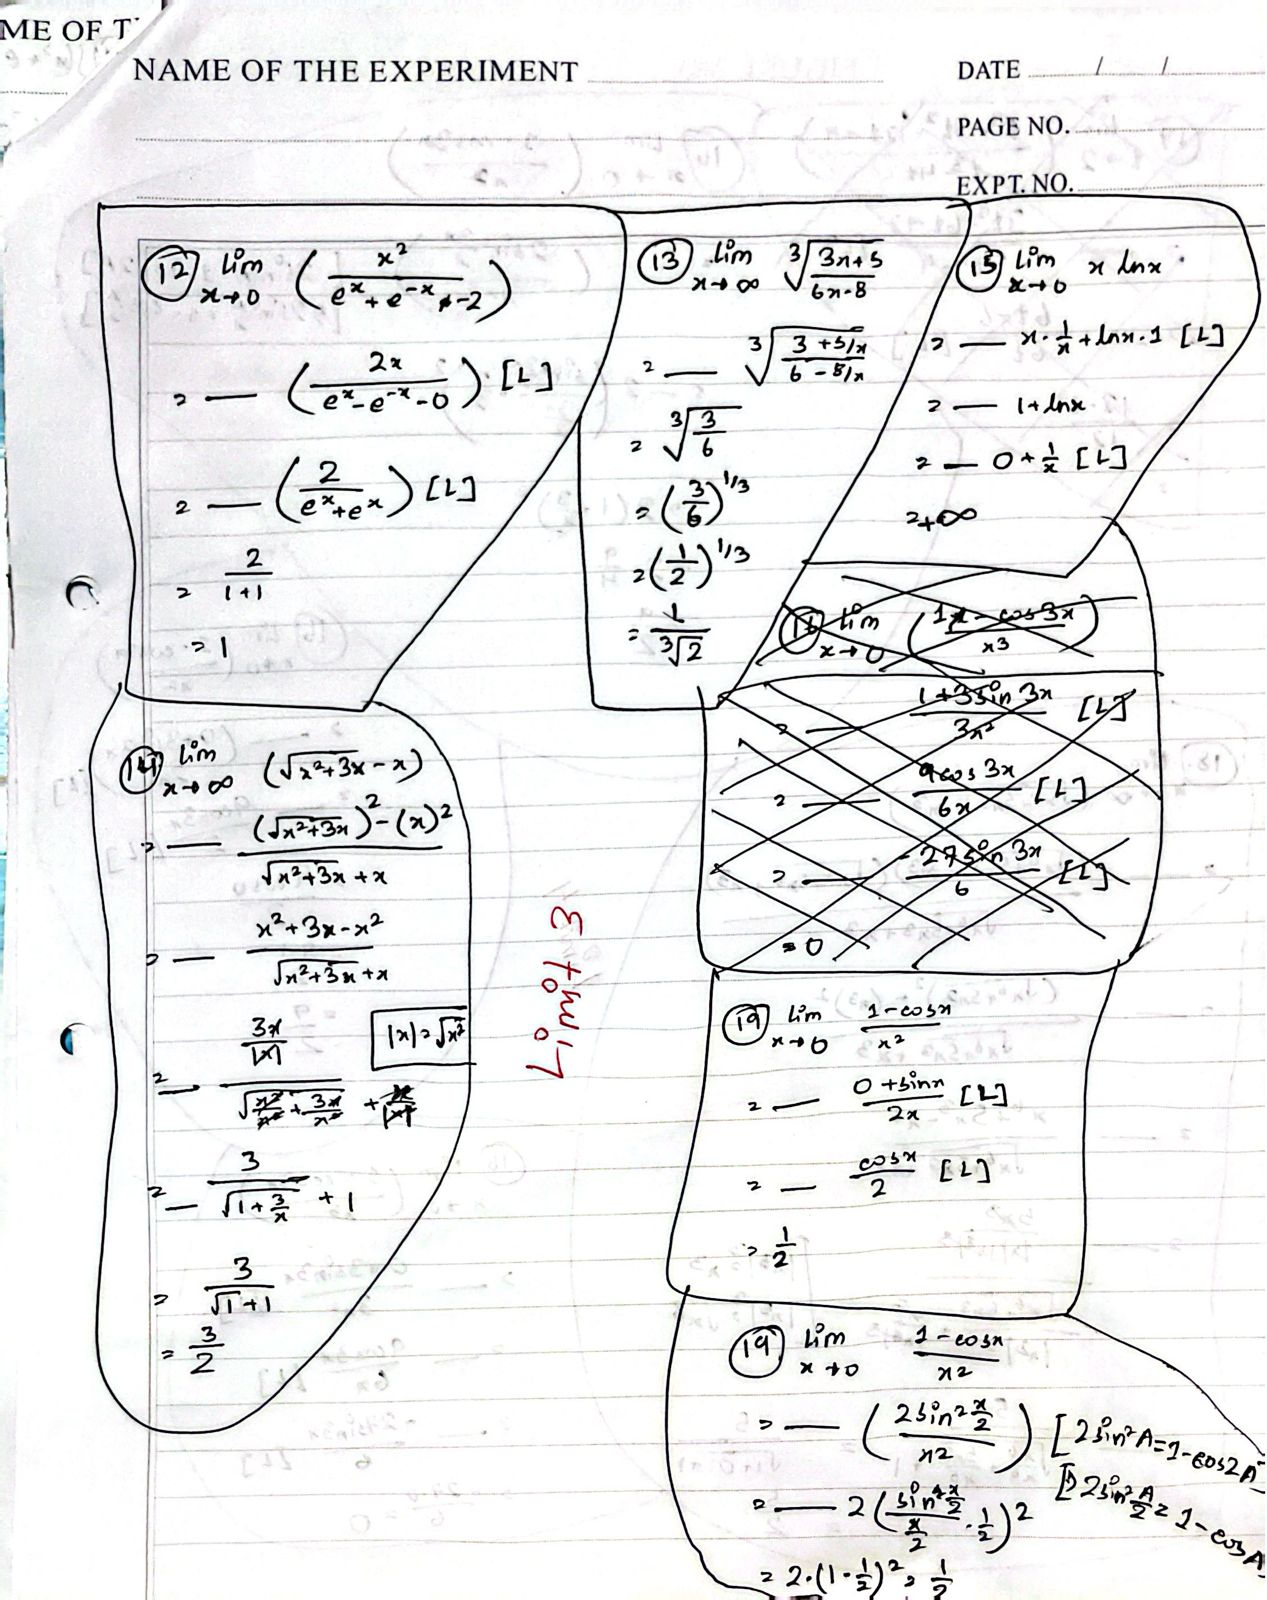 ME OF T
NAME OF THE EXPERIMENT
DATE / /
PAGE NO.
EXPT. NO.
(12) lim x→0 (x²/(eˣ+e⁻ˣ-2))
= — (2x/(eˣ-e⁻ˣ-0)) [L]
= — (2/(eˣ+eˣ)) [L]
= 2/(1+1)
= 1
(13) lim x→∞ ∛((3x+5)/(6x-8))
= — ∛((3+5/x)/(6-8/x))
= ∛(3/6)
= (3/6)^1/3
= (1/2)^1/3
= 1/∛2
(15) lim x→0 x lnx
= — x·1/x + lnx·1 [L]
= — 1+lnx
= — 0+1/x [L]
=+∞
lim x→0 ((1 - cos3x)/x³)
= — (1+3sin3x)/3x² [L]
= — 9cos3x/6x [L]
= — -27sin3x/6 [L]
= 0
(14) lim x→∞ (√(x²+3x) - x)
= — ((√(x²+3x))² - (x)²)/(√(x²+3x) + x)
= — (x²+3x-x²)/(√(x²+3x) + x)
= — (3x/|x|)/(√(x²/x²+3x/x²) + x/|x|)
|x| = √x²
= — 3/(√(1+3/x) + 1)
= 3/(√1+1)
= 3/2
Limit 3
(19) lim x→0 (1-cosx)/x²
= — (0+sinx)/2x [L]
= — cosx/2 [L]
= 1/2
(19) lim x→0 (1-cosx)/x²
= — (2sin²x/2 / x²) [2sin²A=1-cos2A
= — 2(sin x/2 / x/2 · 1/2)² 2sin²A/2 = 1-cosA]
= 2·(1·1/2)² = 1/2